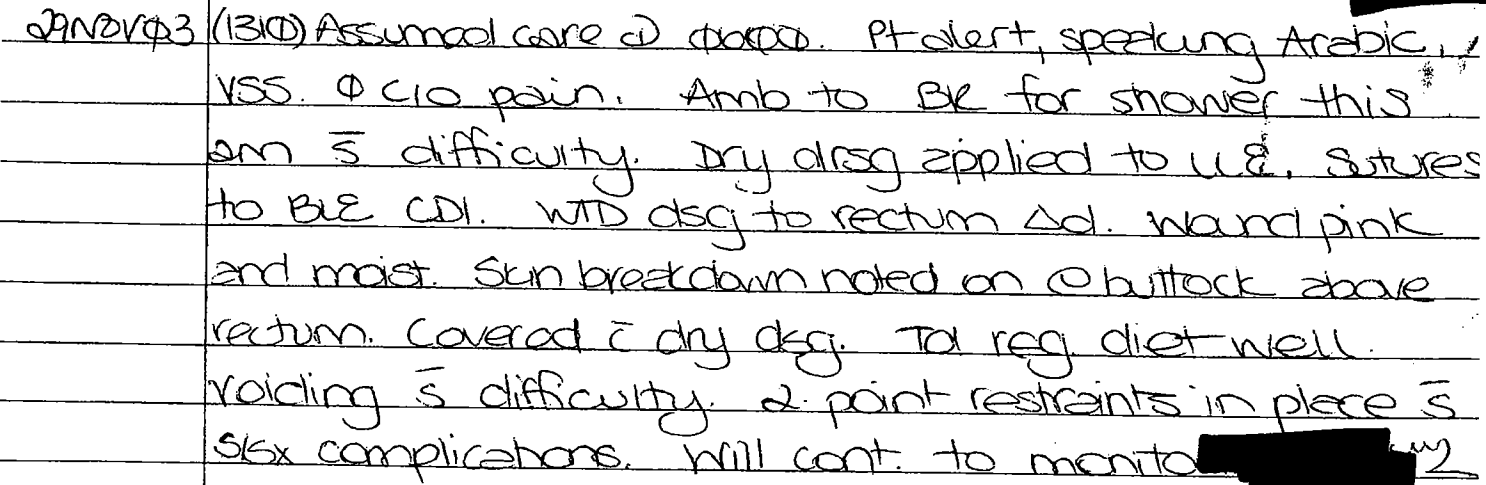 29NOV03 (1310) Assumed care @ 0700. Pt alert, speaking Arabic,
VSS. Ø c/o pain. Amb to BR for shower this
am s̄ difficulty. Dry drsg applied to LLE. Sutures
to BLE CDI. WTD dsg to rectum Δd. Wound pink
and moist. Skin breakdown noted on buttock above
rectum. Covered c̄ dry dsg. Tol reg. diet well.
Voiding s̄ difficulty. 2 point restraints in place s̄
s/sx complications. Will cont. to monito